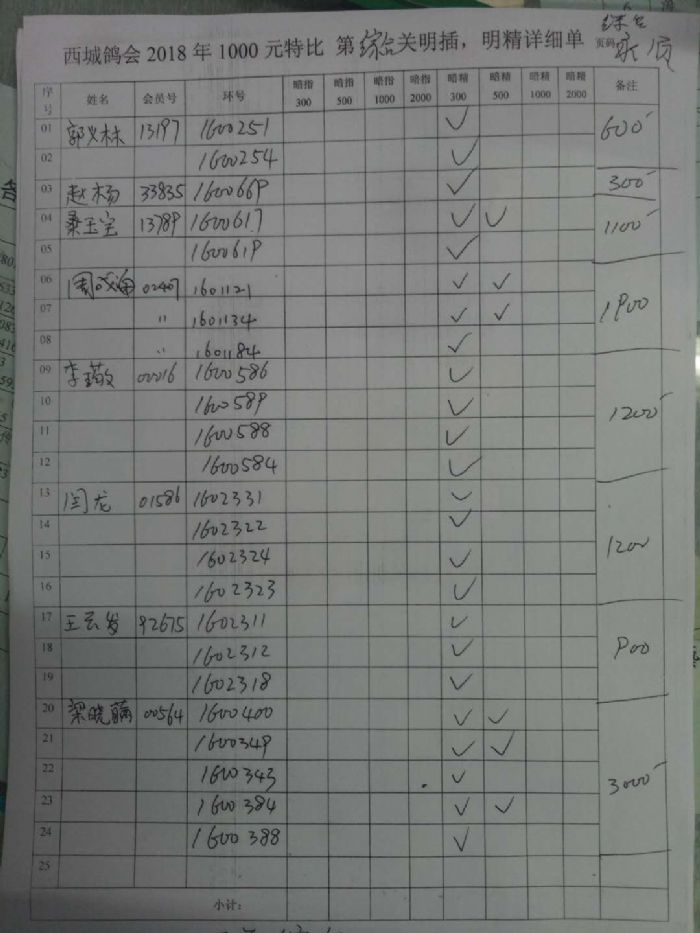 综合
西城鸽会 2018 年 1000 元特比 第 综合 关明插，明精详细单 页码
序号 姓名 会员号 环号 暗指300 暗指500 暗指1000 暗指2000 暗精300 暗精500 暗精1000 暗精2000 备注
01 郭义林 13197 1600251 ✓ 600
02 1600254 ✓
03 赵杨 33835 1600669 ✓ 300
04 桑玉宝 13789 1600617 ✓ ✓ 1100
05 1600619 ✓
06 02407 1601121 ✓ ✓ 1900
07 〃 1601134 ✓ ✓
08 〃 1601184 ✓
09 00016 1600586 ✓ 1200
10 1600589 ✓
11 1600588 ✓
12 1600584 ✓
13 闫龙 01586 1602331 ✓ 1200
14 1602322 ✓
15 1602324 ✓
16 1602323 ✓
17 92675 1602311 ✓ 900
18 1602312 ✓
19 1602318 ✓
20 00564 1600400 ✓ ✓ 3000
21 1600349 ✓ ✓
22 1600343 ✓
23 1600384 ✓ ✓
24 1600388 ✓
25
小计：